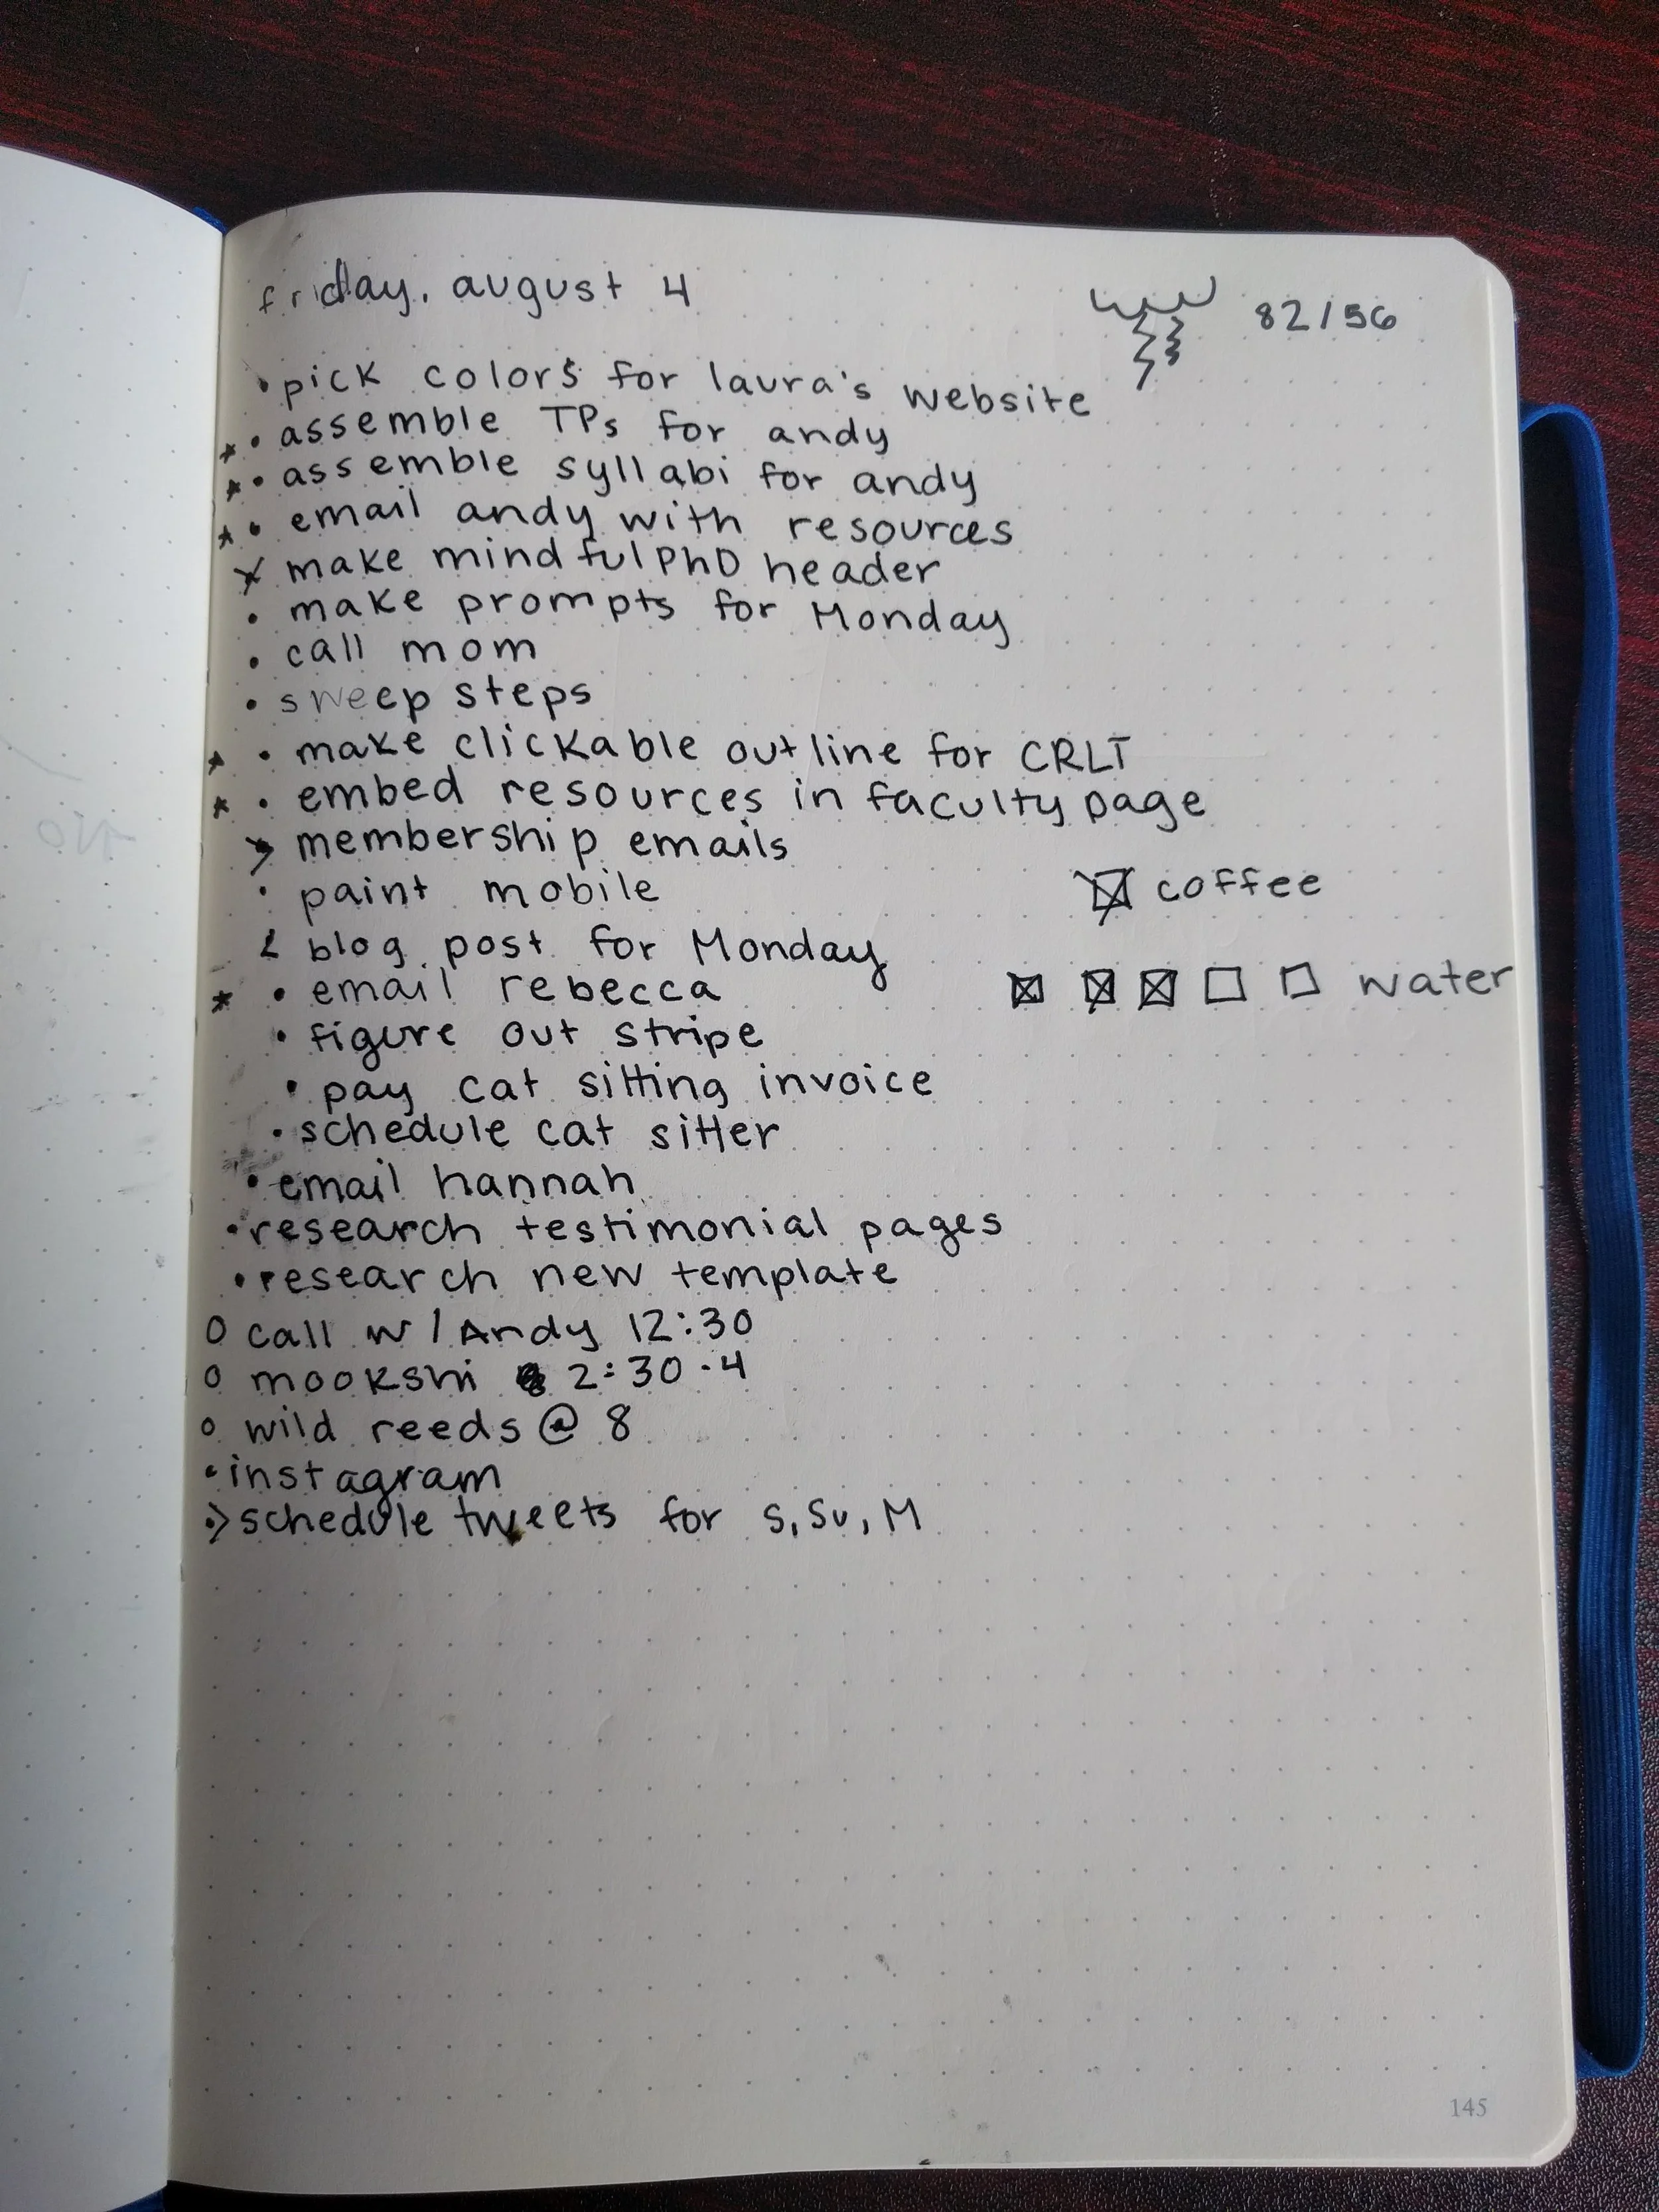 friday, august 4
82/56
• pick colors for laura's website
* • assemble TPs for andy
* • assemble syllabi for andy
* • email andy with resources
x make mindfulPhD header
• make prompts for Monday
• call mom
• sweep steps
* • make clickable outline for CRLT
* • embed resources in faculty page
> membership emails
• paint mobile
☒ coffee
< blog post for Monday
* • email rebecca
☒ ☒ ☒ ☐ ☐ water
• figure out stripe
• pay cat sitting invoice
• schedule cat sitter
• email hannah
• research testimonial pages
• research new template
O call w/ Andy 12:30
O mookshi 2:30-4
O wild reeds @ 8
• instagram
> schedule tweets for S, Su, M
145